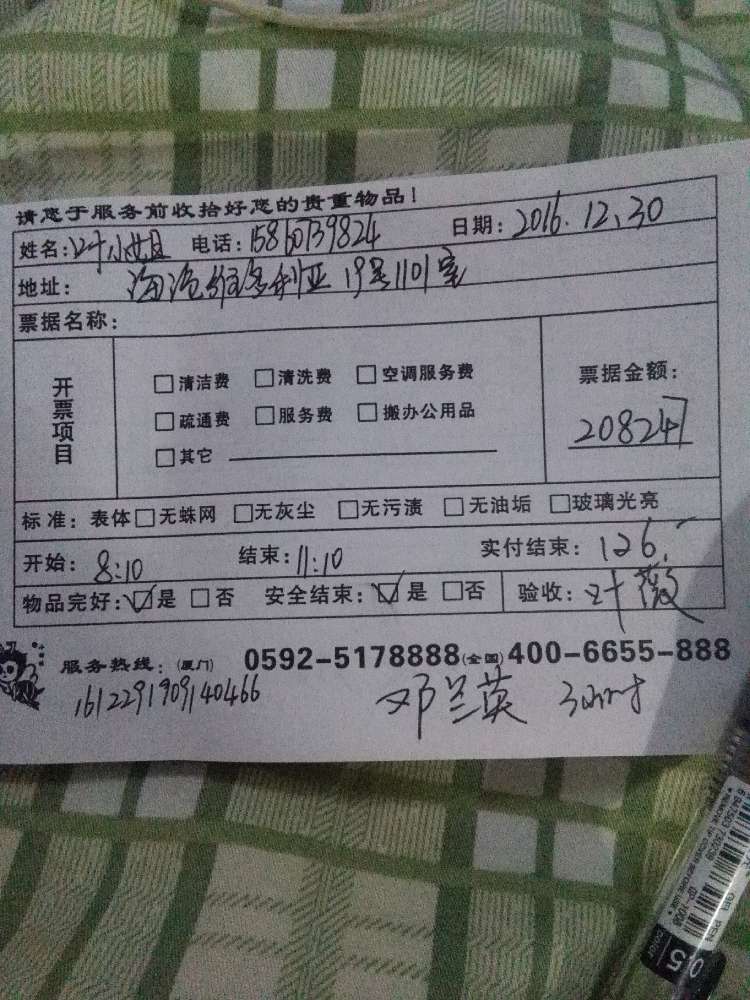 请您于服务前收拾好您的贵重物品!
姓名:叶小姐 电话:15860739824 日期:2016.12.30
地址: 海沧维多利亚 19号1101室
票据名称:
开票项目
□清洁费 □清洗费 □空调服务费
□疏通费 □服务费 □搬办公用品
□其它
票据金额:
20824
标准:表体□无蛛网 □无灰尘 □无污渍 □无油垢 □玻璃光亮
开始:8:10 结束:11:10 实付结束:126.-
物品完好:☑是 □否 安全结束:☑是 □否 验收:叶薇
服务热线:(厦门) 0592-5178888(全国)400-6655-888
1612291909140466 邓兰英 3小时
GEL PEN
0.5